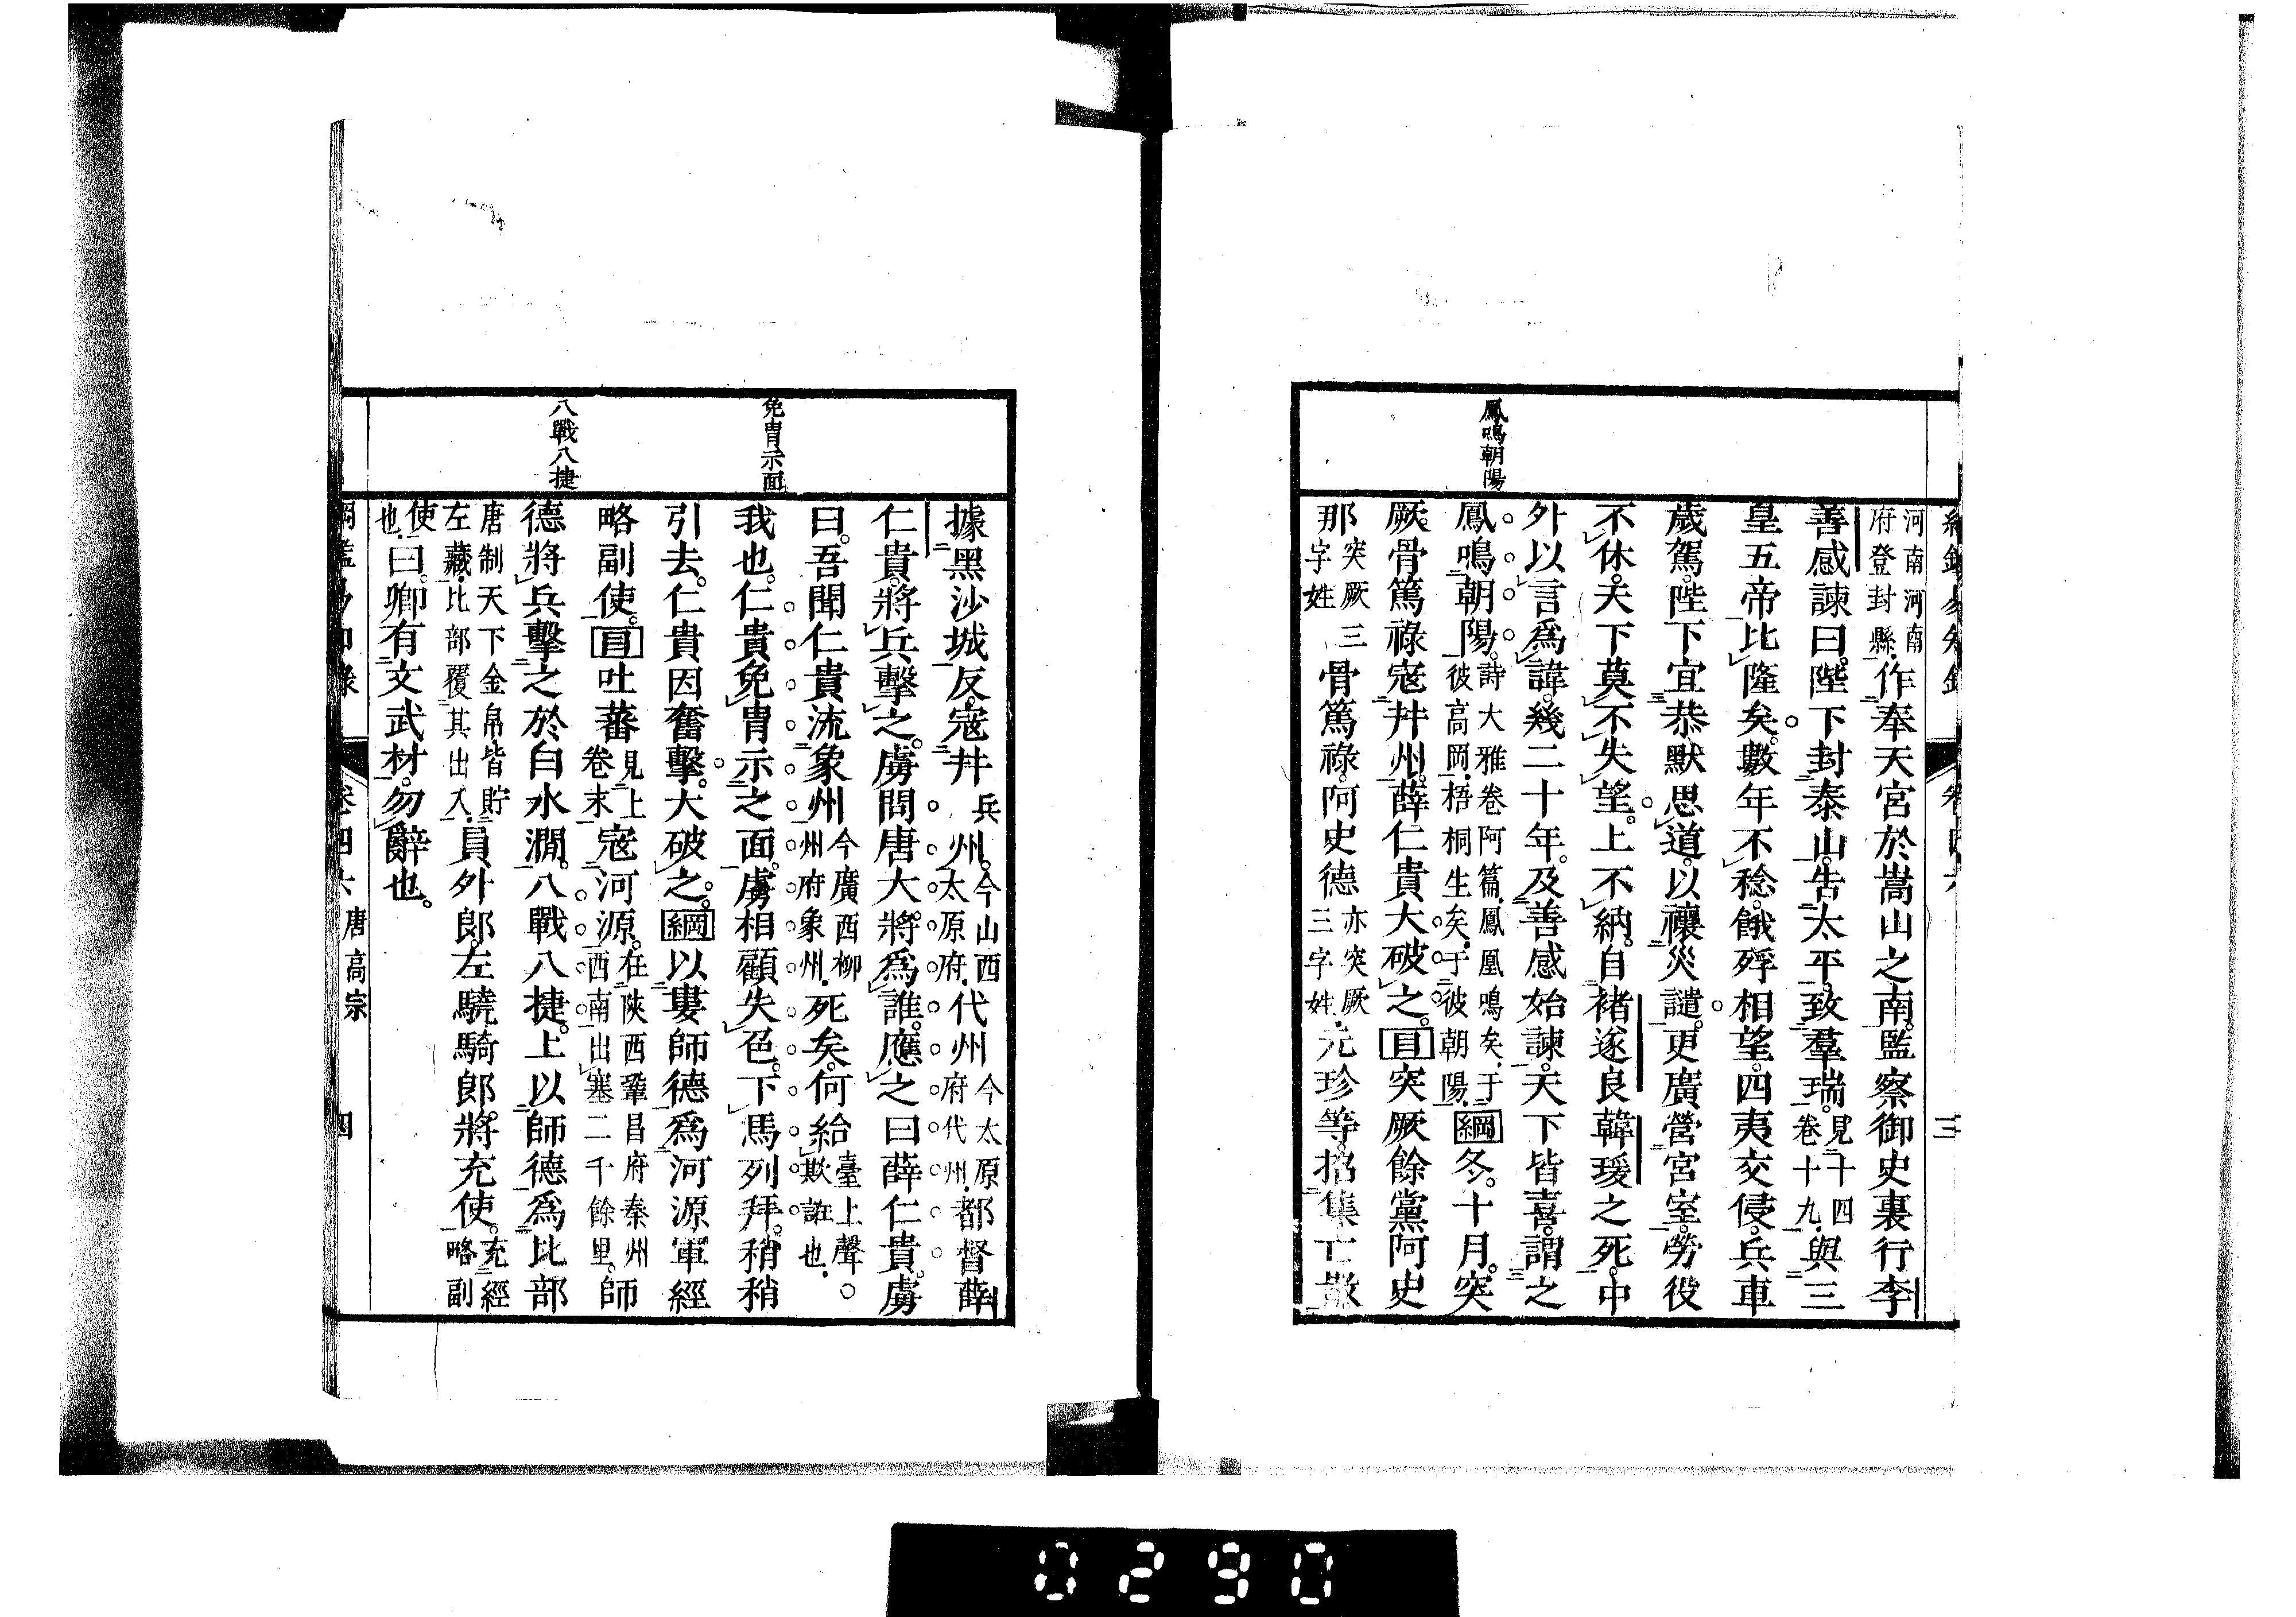 鳳鳴朝陽
河南河南
府登封縣。作奉天宮於嵩山之南。監察御史裏行李
善感諫曰。陛下封泰山。告太平。致羣瑞。見十四卷十九。與三
皇五帝比隆矣。數年不稔。餓殍相望。四夷交侵。兵車
歲駕。陛下宜恭默思道。以禳災譴。更廣營宮室。勞役
不休。天下莫不失望。上不納。自褚遂良韓瑗之死。中
外以言爲諱。幾二十年。及善感始諫。天下皆喜。謂之
鳳鳴朝陽。詩大雅卷阿篇。鳳凰鳴矣。于彼高岡。梧桐生矣。于彼朝陽。綱冬。十月。突
厥。骨篤祿寇并州。薛仁貴大破之。目突厥餘黨阿史
那突厥三字姓骨篤祿。阿史德亦突厥三字姓。元珍等。招集亡散
卷四六 三
免胄示面
八戰八捷
據黑沙城反。寇并州。今山西太原府。代州今太原府代州。都督薛
仁貴。將兵擊之。虜問唐大將爲誰。應之曰薛仁貴。虜
曰。吾聞仁貴流象州今廣西柳州府象州。死矣。何紿臺上聲。欺誑也。
我也。仁貴免胄示之面。虜相顧失色。下馬列拜。稍稍
引去。仁貴因奮擊。大破之。綱以婁師德爲河源軍經
略副使。目吐蕃見上卷末寇河源。在陝西鞏昌府秦州西南出塞二千餘里。師
德將兵擊之於白水澗。八戰八捷。上以師德爲比部
唐制天下金帛皆貯左藏。比部覆其出入。員外郎。左驍騎郎。將充使。充經略副
使也。曰。卿有文武材。勿辭也。
卷四六 唐高宗 四
0290